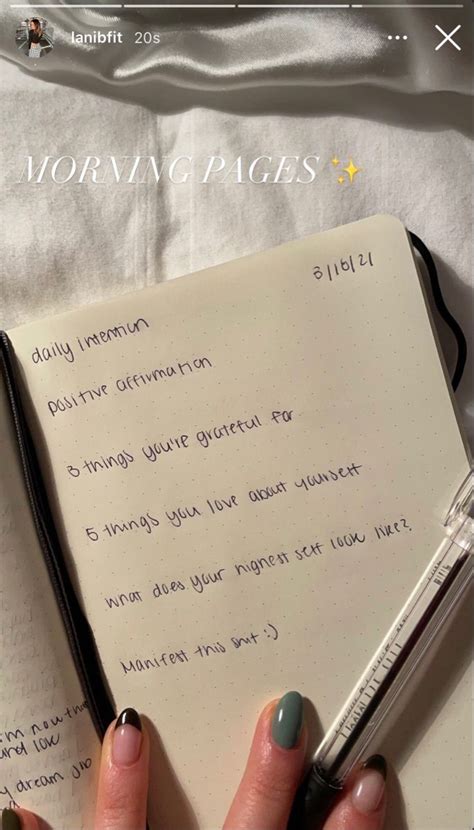 lanibfit 20s
MORNING PAGES ✨
3/16/21
daily intention
positive affirmation
3 things you're grateful for
5 things you love about yourself
what does your highest self look like?
Manifest this shit :)
im now
and love
dream job